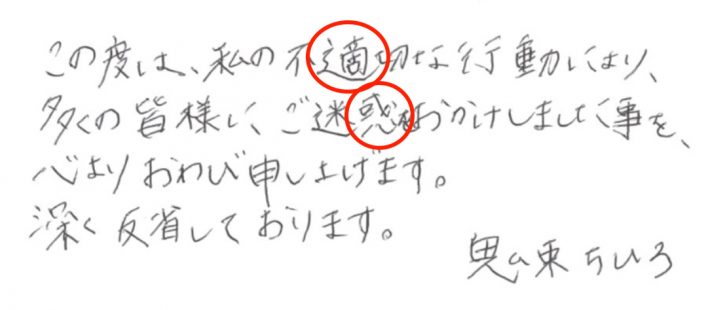 この度は、私の不適切な行動により、
多くの皆様に、ご迷惑をおかけしました事を、
心よりおわび申し上げます。
深く反省しております。
鬼束ちひろ